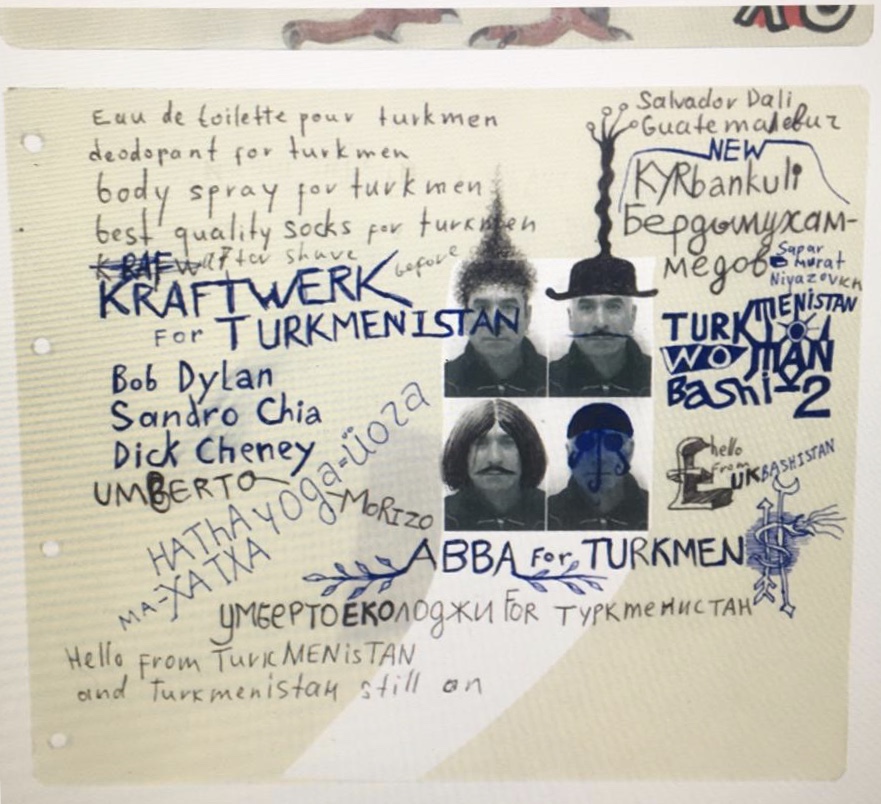 Eau de toilette pour turkmen
deodorant for turkmen
body spray for turkmen
best quality socks for turkmen
after shave before
KRAFTWERK
FOR TURKMENISTAN
Bob Dylan
Sandro Chia
Dick Cheney
UMBERTO
MORIZO
HATHA YOGA-ЙОГА
МА-ХАТХА
Salvador Dali
NEW
KYRbankuli
Бердымухам-
медов
Sapar
Murat
Niyazovich
TURKMENISTAN
WOMAN
Bashi
2
hello
from
UKBASHISTAN
ABBA for TURKMEN
УМБЕРТОЕКОЛОДЖИ FOR ТУРКМЕНИСТАН
Hello from TurkMENisTAN
and Turkmenistan still on